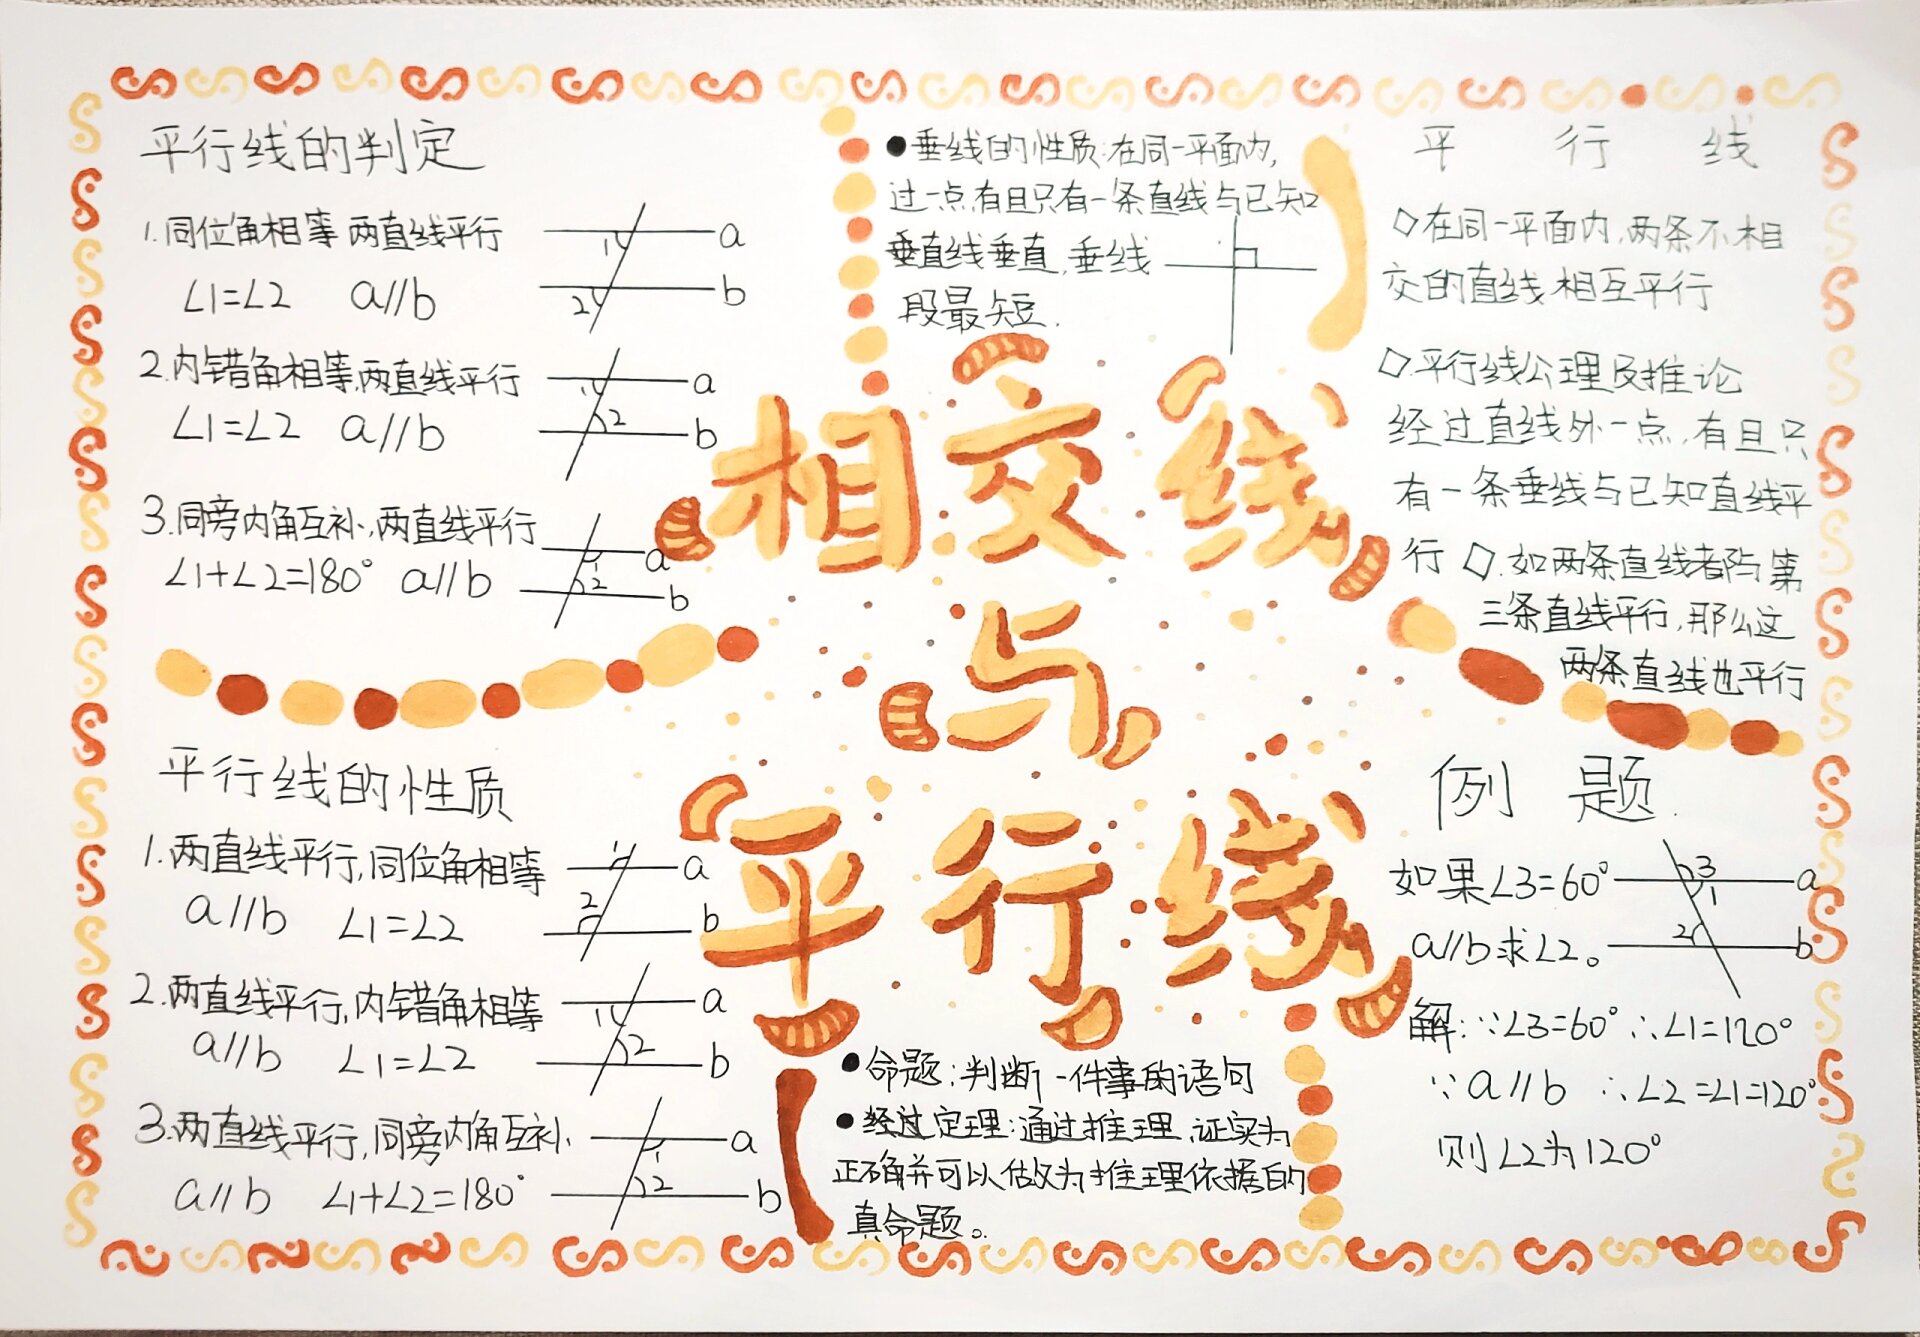 平行线的判定
1.同位角相等 两直线平行
∠1=∠2 a//b
1
2
a
b
2.内错角相等,两直线平行
∠1=∠2 a//b
1
2
a
b
3.同旁内角互补,两直线平行
∠1+∠2=180° a//b
1
2
a
b
●垂线的性质:在同一平面内,
过一点有且只有一条直线与已知
垂直线垂直,垂线
段最短.
平行线
◇在同一平面内,两条不相
交的直线相互平行
◇.平行线公理及推论
经过直线外一点,有且只
有一条垂线与已知直线平
行 ◇.如两条直线都与第
三条直线平行,那么这
两条直线也平行
相交线
与
平行线
平行线的性质
1.两直线平行,同位角相等
a//b ∠1=∠2
1
2
a
b
2.两直线平行,内错角相等
a//b ∠1=∠2
1
2
a
b
3.两直线平行,同旁内角互补
a//b ∠1+∠2=180°
1
2
a
b
●命题:判断一件事的语句
●经过定理:通过推理,证实为
正确并可以做为推理依据的
真命题。
例题.
如果∠3=60°
a//b求∠2。
3
1
2
a
b
解:∵∠3=60°∴∠1=120°
∵a//b ∴∠2=∠1=120°
则∠2为120°